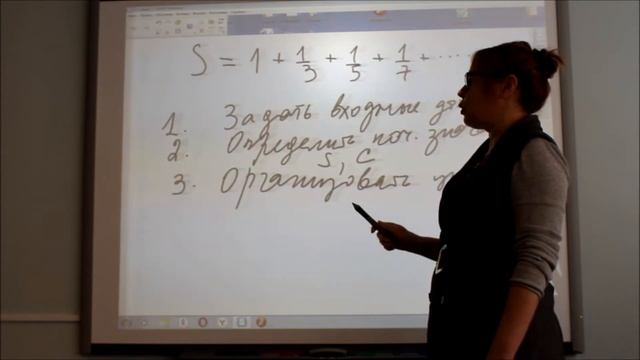 S = 1 + 1/3 + 1/5 + 1/7 + ...
1. Задать входные
2. Определить нач.
S, C
3. Организовать